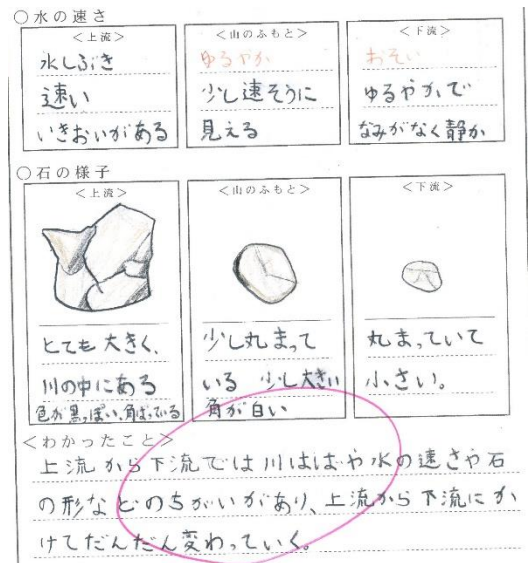 ○水の速さ
<上流>
水しぶき
速い
いきおいがある
<山のふもと>
ゆるやか
少し速そうに
見える
<下流>
おそい
ゆるやかで
なみがなく静か
○石の様子
<上流>
とても大きく、
川の中にある
色が黒っぽい、角ばっている
<山のふもと>
少し丸まって
いる 少し大きい
角が白い
<下流>
丸まっていて
小さい。
<わかったこと>
上流から下流では川はばや水の速さや石
の形などのちがいがあり、上流から下流にか
けてだんだん変わっていく。